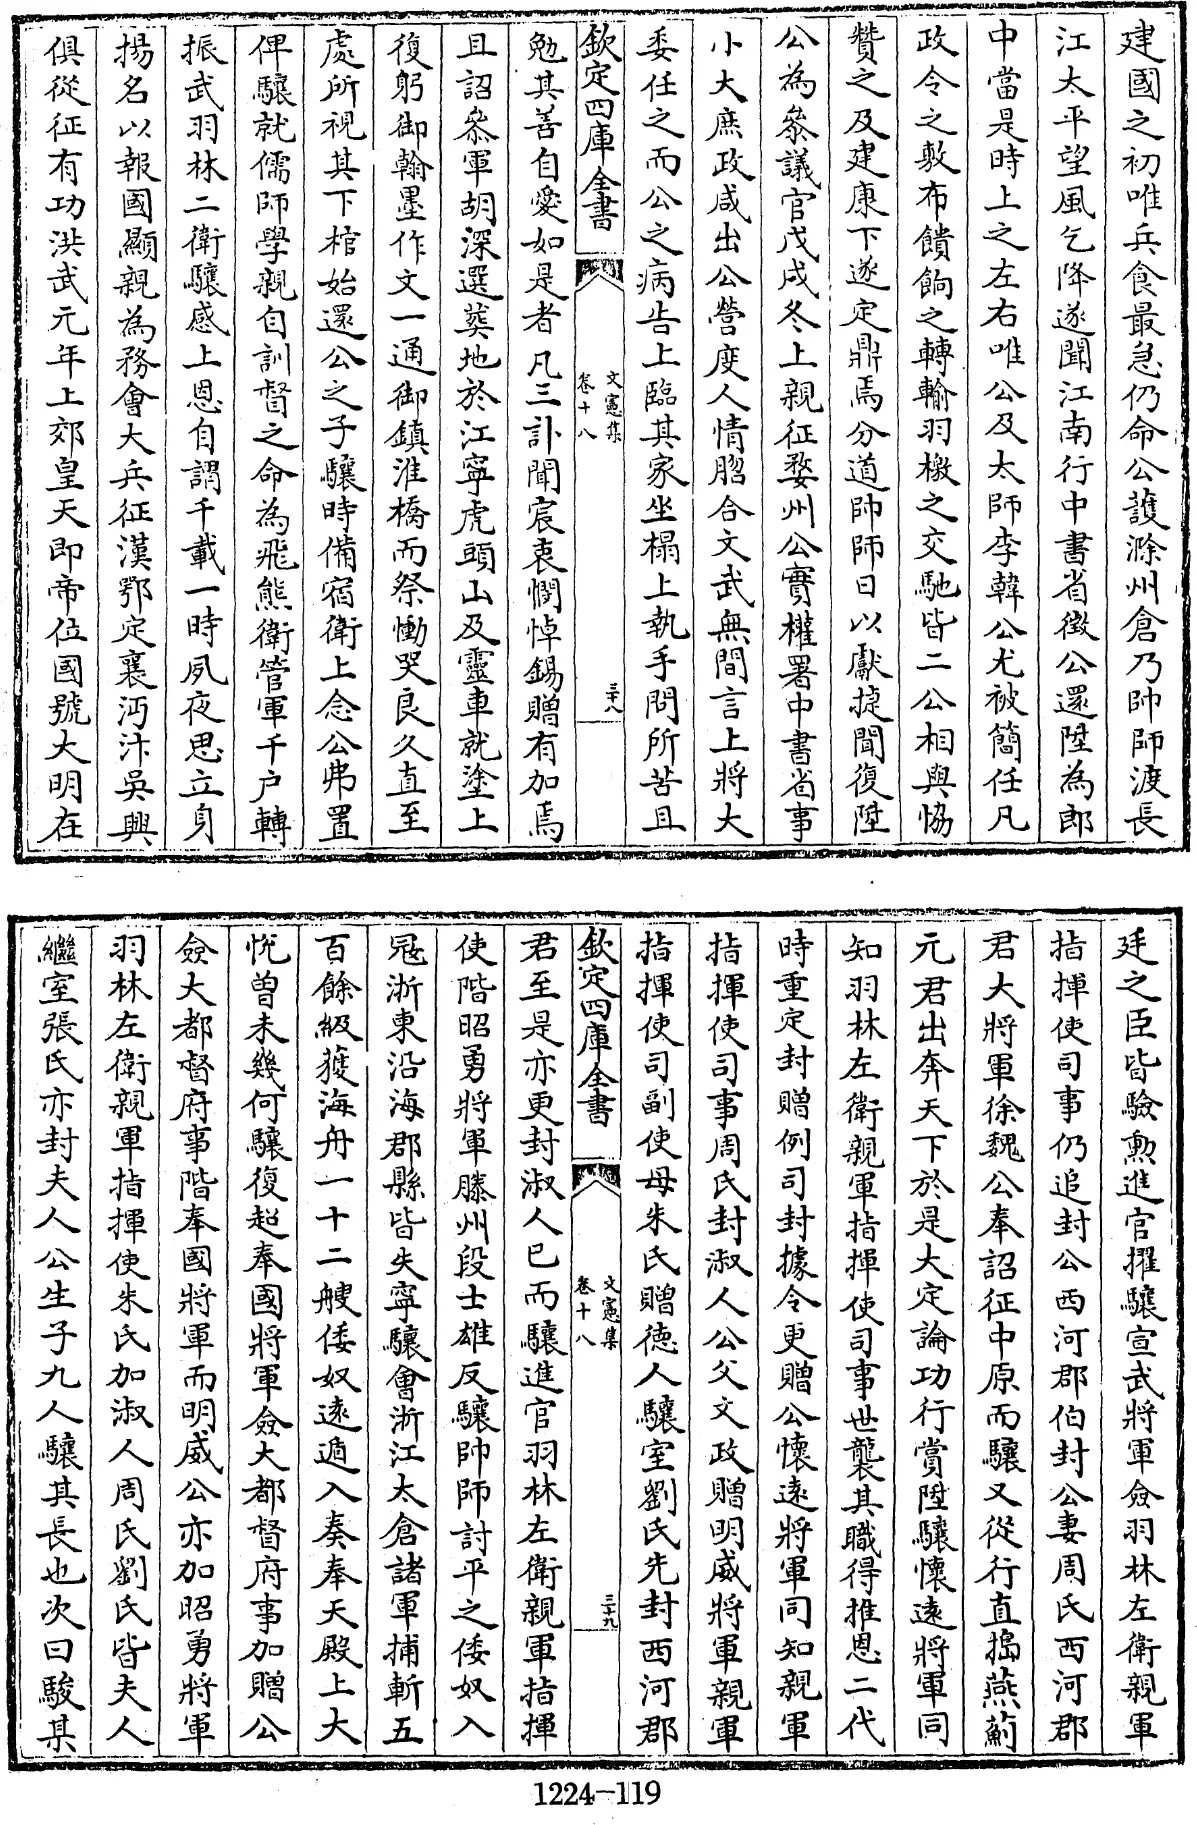 建國之初唯兵食最急仍命公護滁州倉乃帥師渡長
江太平望風乞降遂開江南行中書省徵公還陞為郎
中當是時上之左右唯公及太師李韓公尤被簡任凡
政令之敷布饋餉之轉輸羽檄之交馳皆二公相與恊
贊之及建康下遂定鼎焉分道帥師日以獻捷聞復陞
公為叅議官戊戌冬上親征婺州公實權署中書省事
小大庶政咸出公營度人情脗合文武無間言上將大
委任之而公之病告上臨其家坐榻上執手問所苦且
欽定四庫全書
文憲集
卷十八
三十八
勉其善自愛如是者凡三訃聞宸衷憫悼錫贈有加焉
且詔叅軍胡深選葬地於江寧虎頭山及靈車就塗上
復躬御翰墨作文一通御鎮淮橋而祭慟哭良久直至
處所視其下棺始還公之子驤時備宿衛上念公弗置
俾驤就儒師學親自訓督之命為飛熊衛管軍千户轉
振武羽林二衛驤感上恩自謂千載一時夙夜思立身
揚名以報國顯親為務會大兵征漢鄂定襄沔汴吳興
俱從征有功洪武元年上郊皇天即帝位國號大明在
廷之臣皆驗勲進官擢驤宣武將軍僉羽林左衛親軍
指揮使司事仍追封公西河郡伯封公妻周氏西河郡
君大將軍徐魏公奉詔征中原而驤又從行直搗燕薊
元君出奔天下於是大定論功行賞陞驤懷遠將軍同
知羽林左衛親軍指揮使司事世襲其職得推恩二代
時重定封贈例司封據令更贈公懷遠將軍同知親軍
指揮使司事周氏封淑人公父文政贈明威將軍親軍
指揮使司副使母朱氏贈德人驤室劉氏先封西河郡
欽定四庫全書
文憲集
卷十八
三十九
君至是亦更封淑人已而驤進官羽林左衛親軍指揮
使階昭勇將軍滕州段士雄反驤帥師討平之倭奴入
冦浙東沿海郡縣皆失寧驤會浙江太倉諸軍捕斬五
百餘級獲海舟一十二艘倭奴遠遁入奏奉天殿上大
悅曽未幾何驤復超奉國將軍僉大都督府事加贈公
僉大都督府事階奉國將軍而明威公亦加昭勇將軍
羽林左衛親軍指揮使朱氏加淑人周氏劉氏皆夫人
繼室張氏亦封夫人公生子九人驤其長也次曰駿某
1224-119